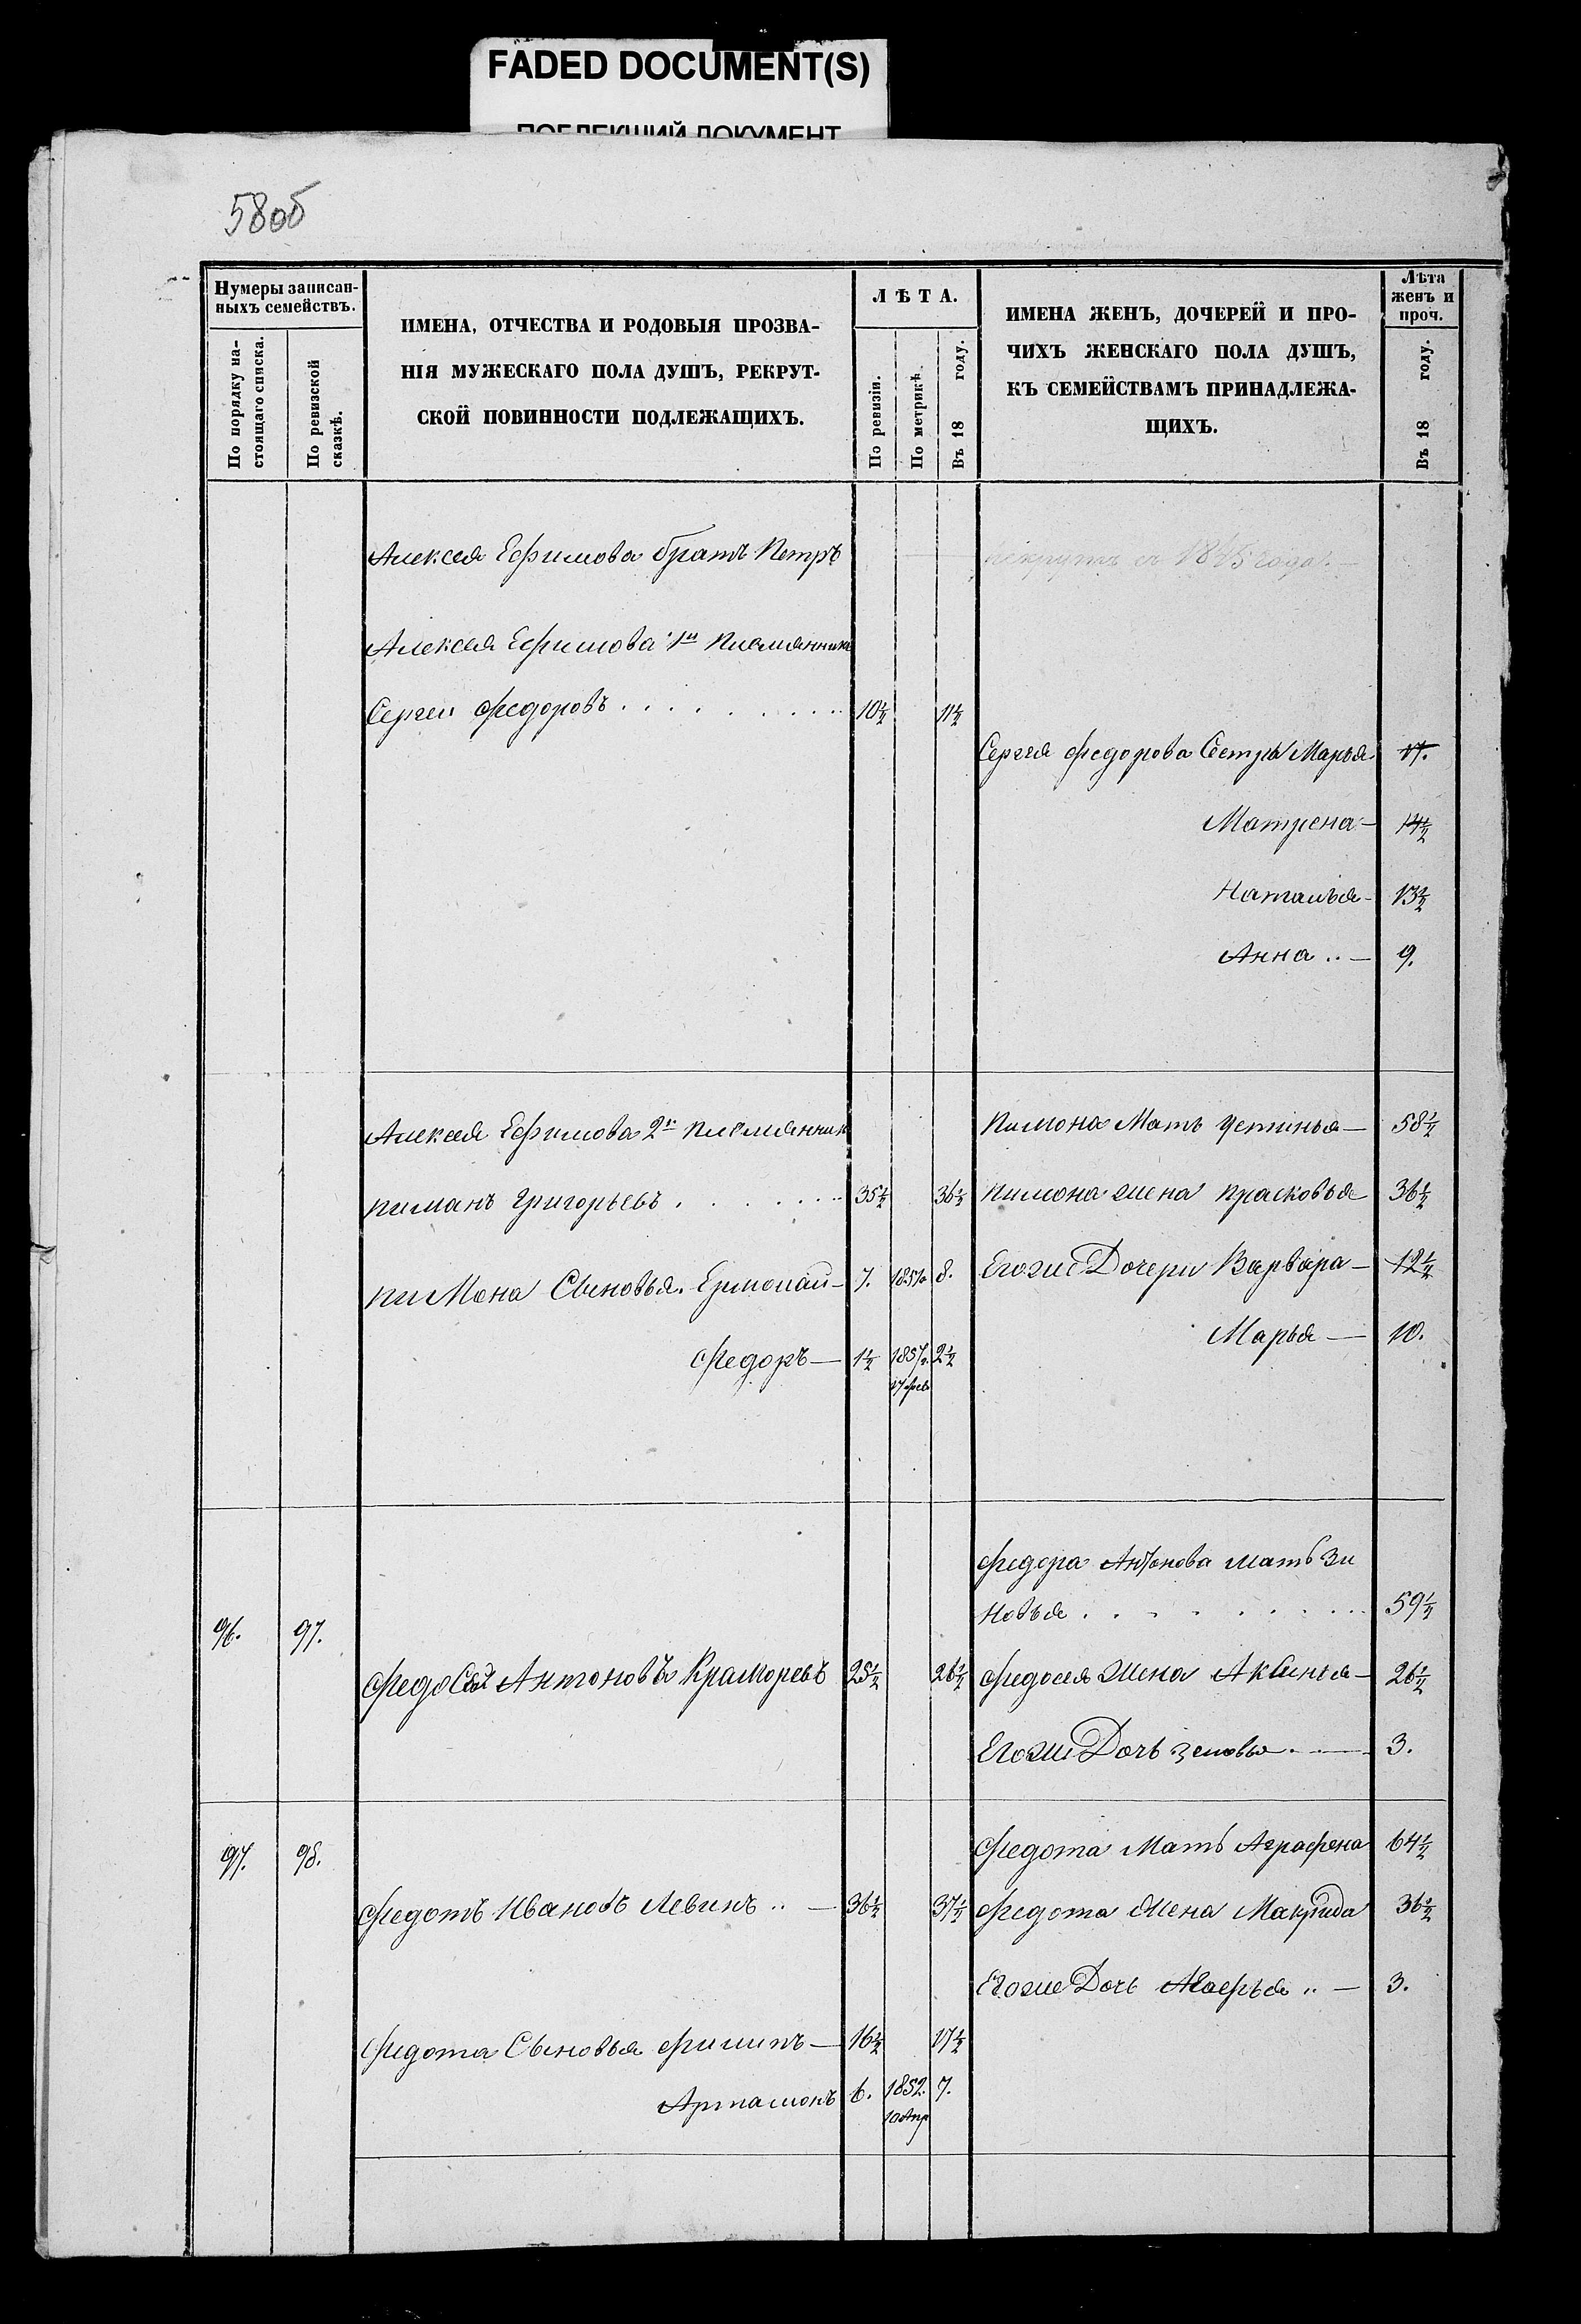 FADED DOCUMENT(S)
ПОБЛЕКШИЙ ДОКУМЕНТ
58об
Нумеры записан-
ныхъ семействъ.
По порядку на-
стоящаго списка.
По ревизской
сказкѣ.
ИМЕНА, ОТЧЕСТВА И РОДОВЫЯ ПРОЗВА-
НІЯ МУЖЕСКАГО ПОЛА ДУШЪ, РЕКРУТ-
СКОЙ ПОВИННОСТИ ПОДЛЕЖАЩИХЪ.
ЛѢТА.
По ревизіи.
По метрикѣ.
Въ 18 году.
ИМЕНА ЖЕНЪ, ДОЧЕРЕЙ И ПРО-
ЧИХЪ ЖЕНСКАГО ПОЛА ДУШЪ,
КЪ СЕМЕЙСТВАМЪ ПРИНАДЛЕЖА-
ЩИХЪ.
Лѣта
женъ и
проч.
Въ 18 году.
Алексея Ефимова братъ Петръ рекрутъ съ 1845 года. —
Алексея Ефимова 1й племянникъ
Сергеи Федоровъ . . . . . . . . 10½ 11½
Сергея Федорова Сестры Марья 17.
Матрена — 14½
Наталья — 13½
Анна .. — 9.
Алексея Ефимова 2й племянник Пимона Мать Устинья — 58½
Пиманъ Григорьевъ . . . . . . 35½ 36½ Пимона жена Прасковья 36½
Пимона Сыновья. Ермолай — 7. 1851 8. Егоже Дочери Варвара — 12½
Марья — 10.
Федоръ — 1½ 1857г. 2½
17 фев
Федора Антонова мать Зи
новья . . . . . . . . 59½
96. 97.
Федосей Антоновъ Краморевъ 25½ 26½ Федосея Жена Аксинья — 26½
Егоже Дочь Зеновья . — 3.
97. 98. Федота Мать Аграфена 64½
Федотъ Ивановъ Левинъ .. — 36½ 37½ Федота Жена Макрида 36½
Егоже Дочь .. — 3.
Федота Сыновья Филипъ — 16½ 17½
Артамонъ 6. 1852. 7.
10 Апр